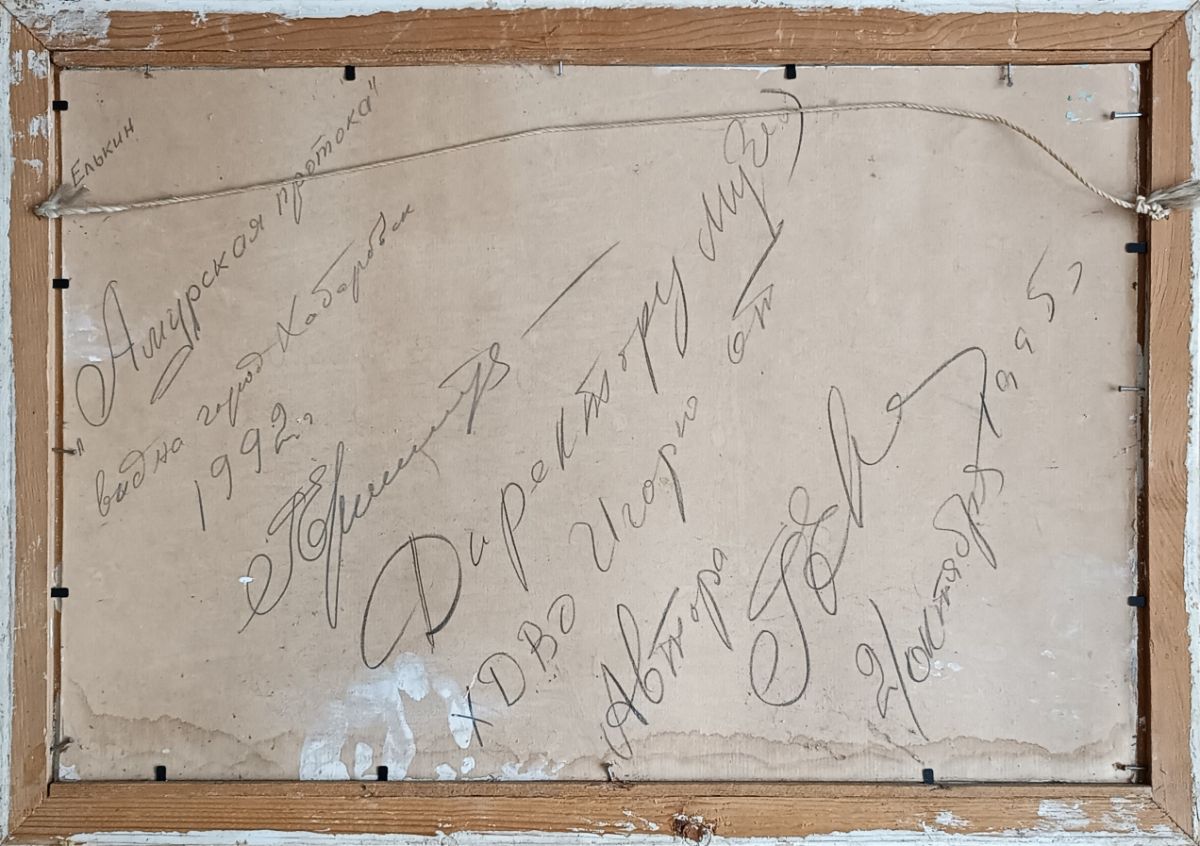 Елькин
"Амурская протока"
вид на город Хабаровск
1992 г
Директору музея
ХДВО Игорю от
Автора
2/октября 1995 г